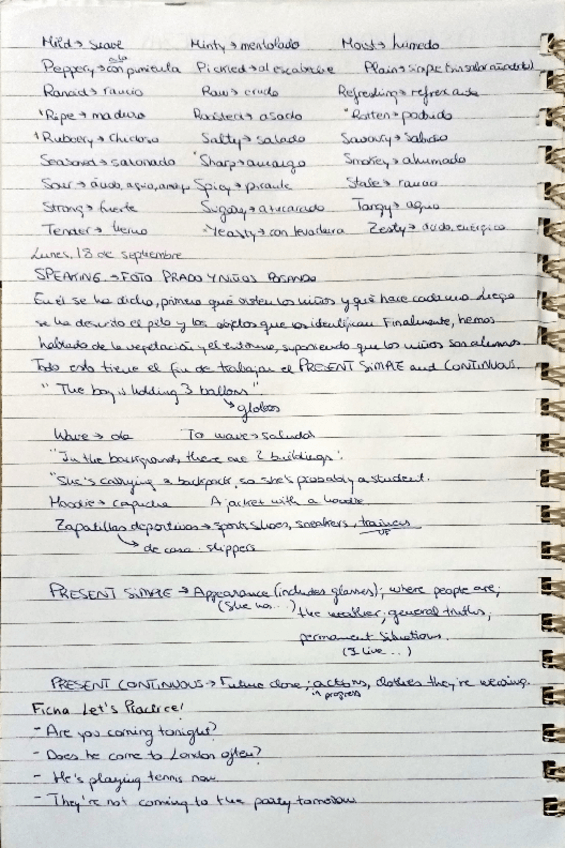 Mild → suave Minty → mentolado Moist → húmedo
Peppery → con pimienta Pickled → al escabeche Plain → simple (sin sabor añadido)
Rancid → rancio Raw → crudo Refreshing → refrescante
Ripe → maduro Roasted → asado Rotten → podrido
Rubbery → chicloso Salty → salado Savoury → sabroso
Seasoned → sazonado Sharp → amargo Smokey → ahumado
Sour → ácido, agrio, amargo Spicy → picante Stale → rancio
Strong → fuerte Sugary → azucarado Tangy → agrio
Tender → tierno Yeasty → con levadura Zesty → ácido, enérgico
Lunes, 18 de septiembre
SPEAKING → FOTO PRADO Y NIÑOS POSANDO
En él se ha dicho, primero qué visten los niños y qué hace cada uno. Luego
se ha descrito el pelo y los objetos que los identifican. Finalmente, hemos
hablado de la vegetación y el entorno, suponiendo que los niños son alumnos.
Todo esto tiene el fin de trabajar el PRESENT SIMPLE and CONTINUOUS.
"The boy is holding 3 ballons"
→ globos
Wave → ola To wave → saludar
"In the background, there are 2 buildings".
"She's carrying a backpack, so she's probably a student.
Hoodie → capucha A jacket with a hoodie
Zapatillas deportivas → sports shoes, sneakers, trainers
→ de casa: slippers
PRESENT SIMPLE → Appearance (includes glasses); where people are;
(She has...) the weather; general truths;
permanent situations.
(I live...)
PRESENT CONTINUOUS → Future close; actions, clothes they're wearing.
in progress
Ficha Let's Practice!
- Are you coming tonight?
- Does he come to London often?
- He's playing tennis now
- They're not coming to the party tomorrow